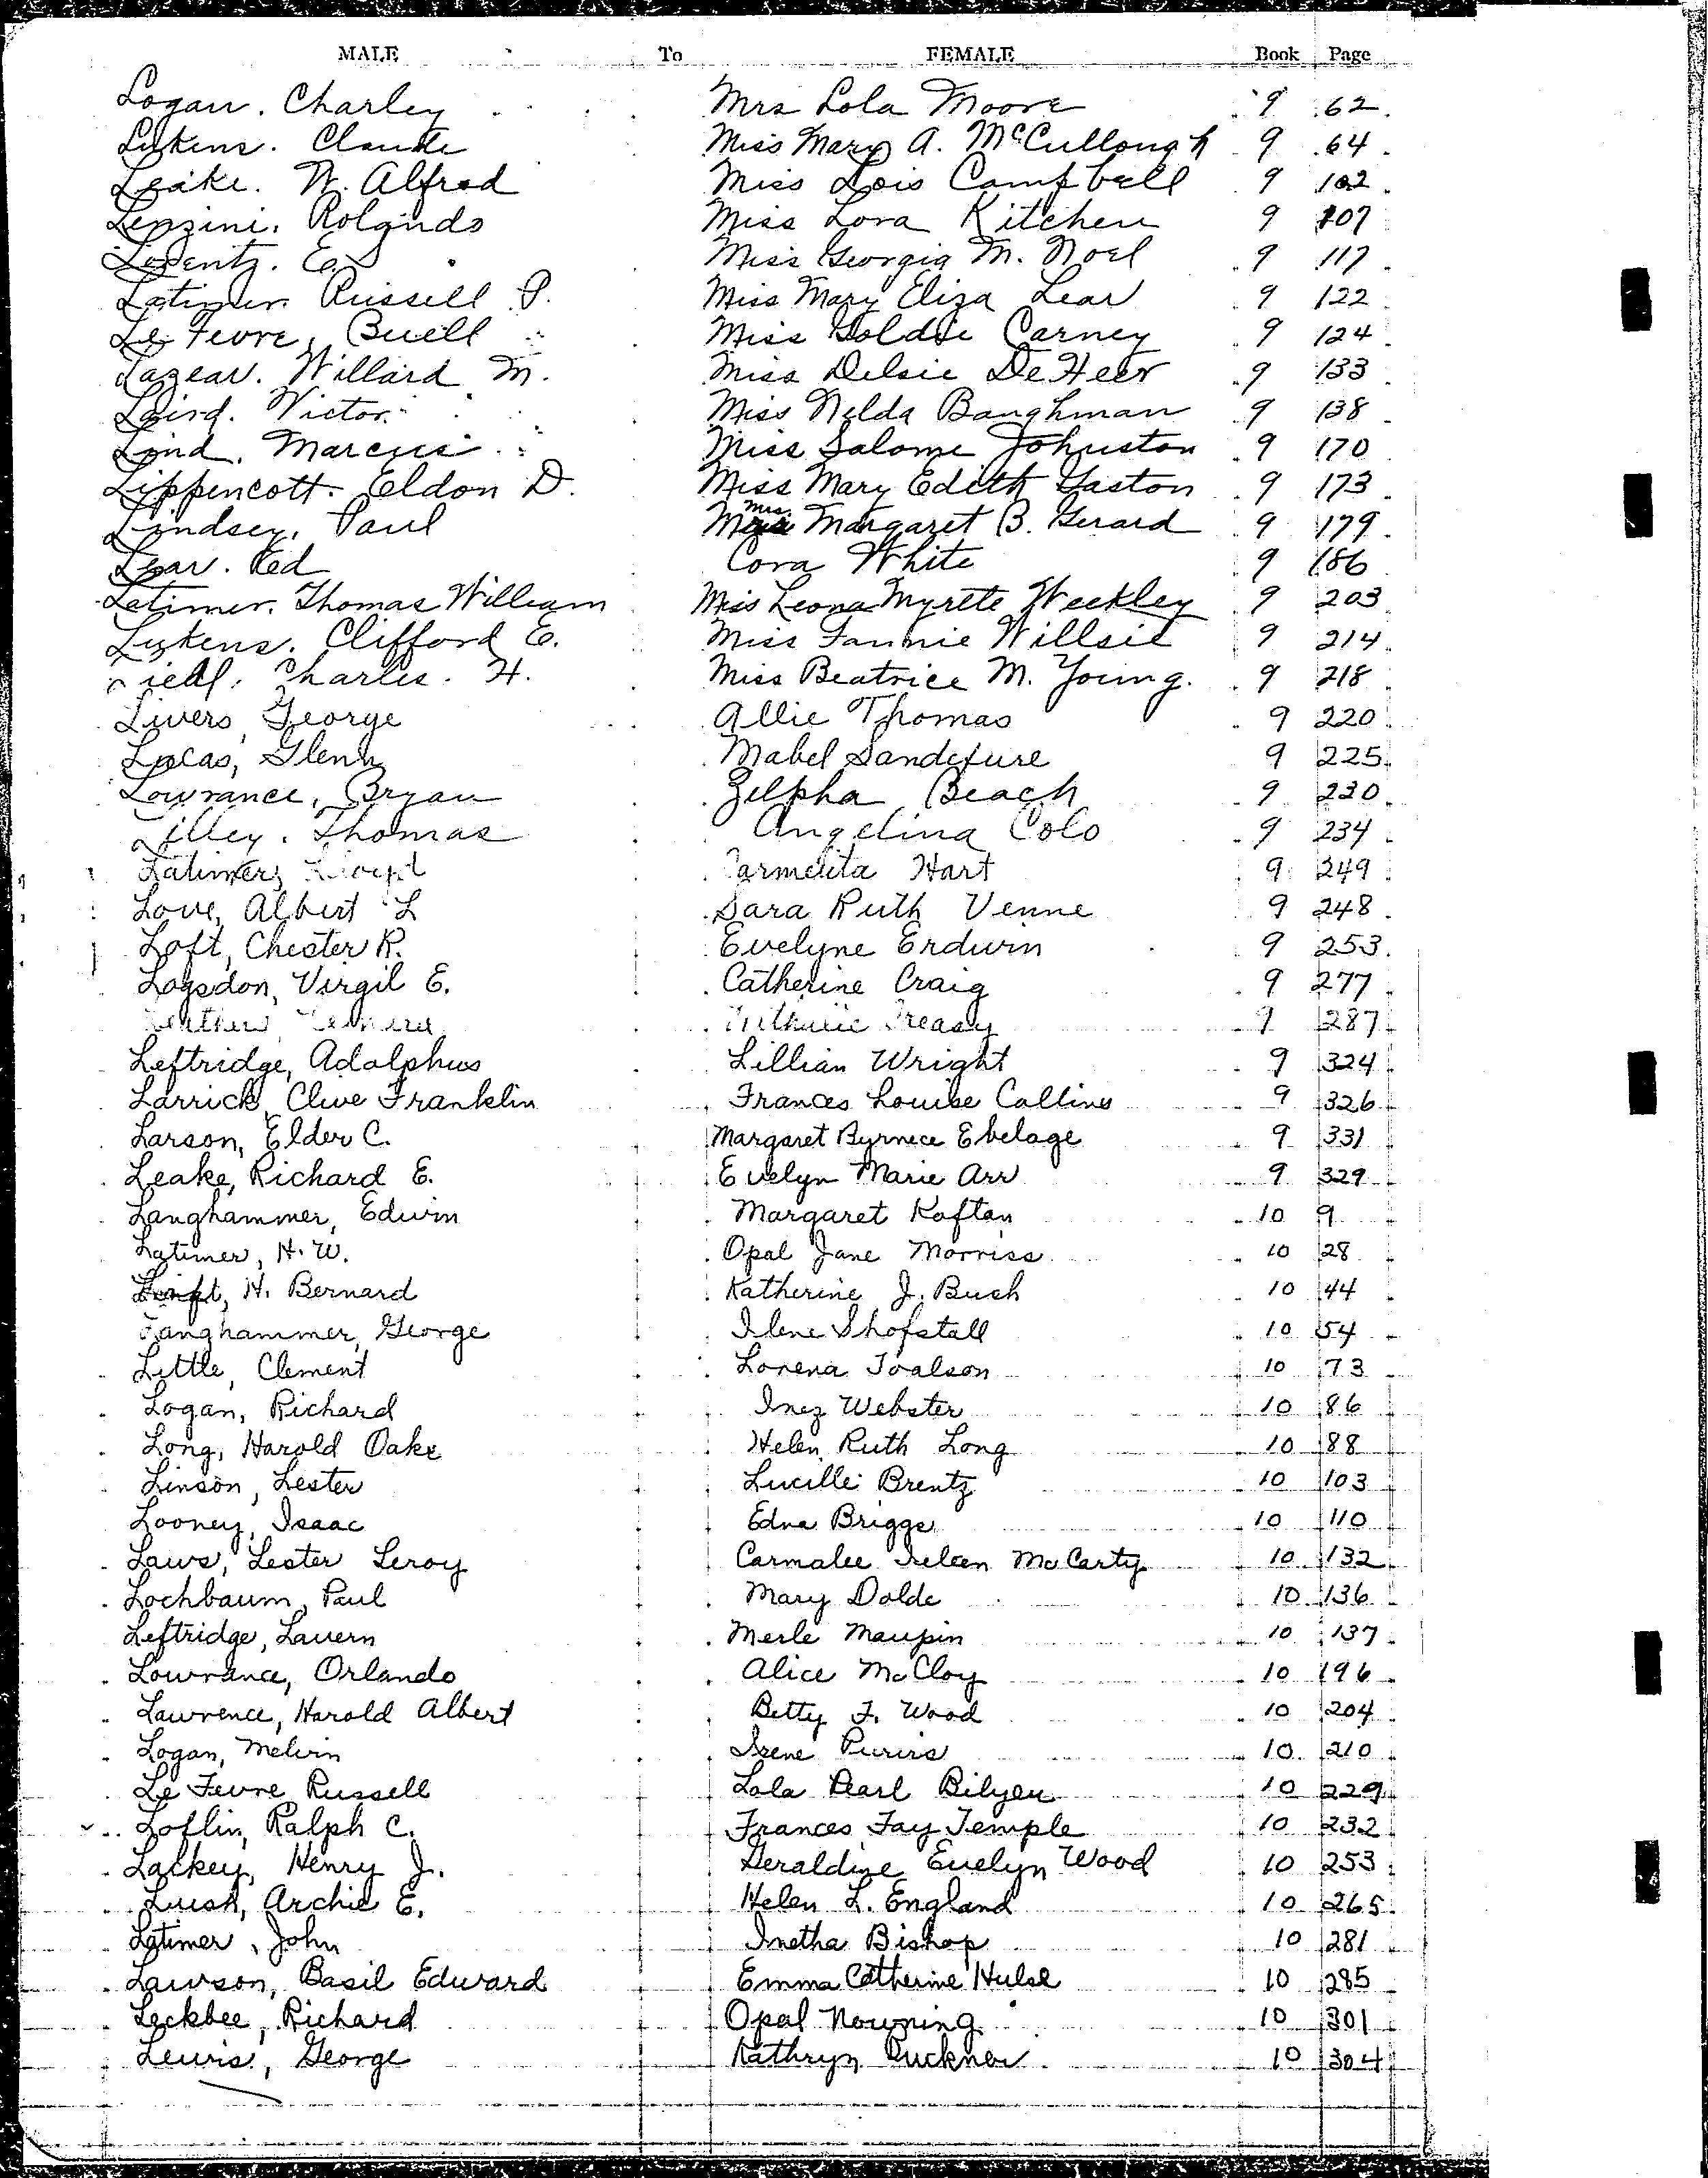 MALE To FEMALE Book Page
Logan. Charley Mrs Lola Moore 9 62
Lukens. Claude Miss Mary A. McCullough 9 64
Leake. W. Alfred Miss Lois Campbell 9 102
Lenzini. Rolando Miss Lora Kitchen 9 107
Lorentz. E. Miss Georgia M. Noel 9 117
Latimer. Russell P. Miss Mary Eliza Lear 9 122
Le Fevre, Buell Miss Goldie Carney 9 124
Lazear. Willard M. Miss Delsie DeHeer 9 133
Laird. Victor. Miss Nelda Baughman 9 138
Lind. Marcus Miss Salome Johnston 9 170
Lippencott. Eldon D. Miss Mary Edith Gaston 9 173
Lindsey. Paul Mrs. Margaret B. Gerard 9 179
Lear. Red Cora White 9 186
Latimer. Thomas William Miss Leona Myrtle Weekley 9 203
Lukens. Clifford E. Miss Fannie Willsie 9 214
Charles. H. Miss Beatrice M. Young. 9 218
Livers, George Allie Thomas 9 220
Lucas, Glenn Mabel Sandefure 9 225
Lowrance, Bryan Zelpha Beach 9 230
Lilley. Thomas Angelina Colo 9 234
Latimer, Lloyd Carmelita Hart 9 249
Love, Albert L Sara Ruth Venne 9 248
Loft, Chester R. Evelyne Erdwin 9 253
Logsdon, Virgil E. Catherine Craig 9 277
Treasy 9 287
Leftridge, Adolphus Lillian Wright 9 324
Larrick, Clive Franklin Frances Louise Collins 9 326
Larson, Elder C. Margaret Byrnece Ebelage 9 331
Leake, Richard E. Evelyn Marie Arr 9 329
Langhammer, Edwin Margaret Koftan 10 9
Latimer, H. W. Opal Jane Morriss 10 28
H. Bernard Katherine J. Bush 10 44
Langhammer, George Ilene Shofstall 10 54
Little, Clement Lorena Toalson 10 73
Logan, Richard Inez Webster 10 86
Long, Harold Oake Helen Ruth Long 10 88
Linson, Lester Lucille Brentz 10 103
Looney, Isaac Edna Briggs 10 110
Laws, Lester Leroy Carmalee Ileen McCarty 10 132
Lochbaum, Paul Mary Dolde 10 136
Leftridge, Lavern Merle Maupin 10 137
Lowrance, Orlando Alice McCloy 10 196
Lawrence, Harold Albert Betty F. Wood 10 204
Logan, Melvin Irene Purvis 10 210
Le Fevre Russell Lola Pearl Bilyeu 10 229
Loflin, Ralph C. Frances Fay Temple 10 232
Lackey, Henry J. Geraldine Evelyn Wood 10 253
Lusk, Archie E. Helen L. England 10 265
Latimer, John Inetha Bishop 10 281
Lawson, Basil Edward Emma Catherine Hulse 10 285
Leckbee, Richard Opal Nowning 10 301
Lewis, George Kathryn Buckner 10 304